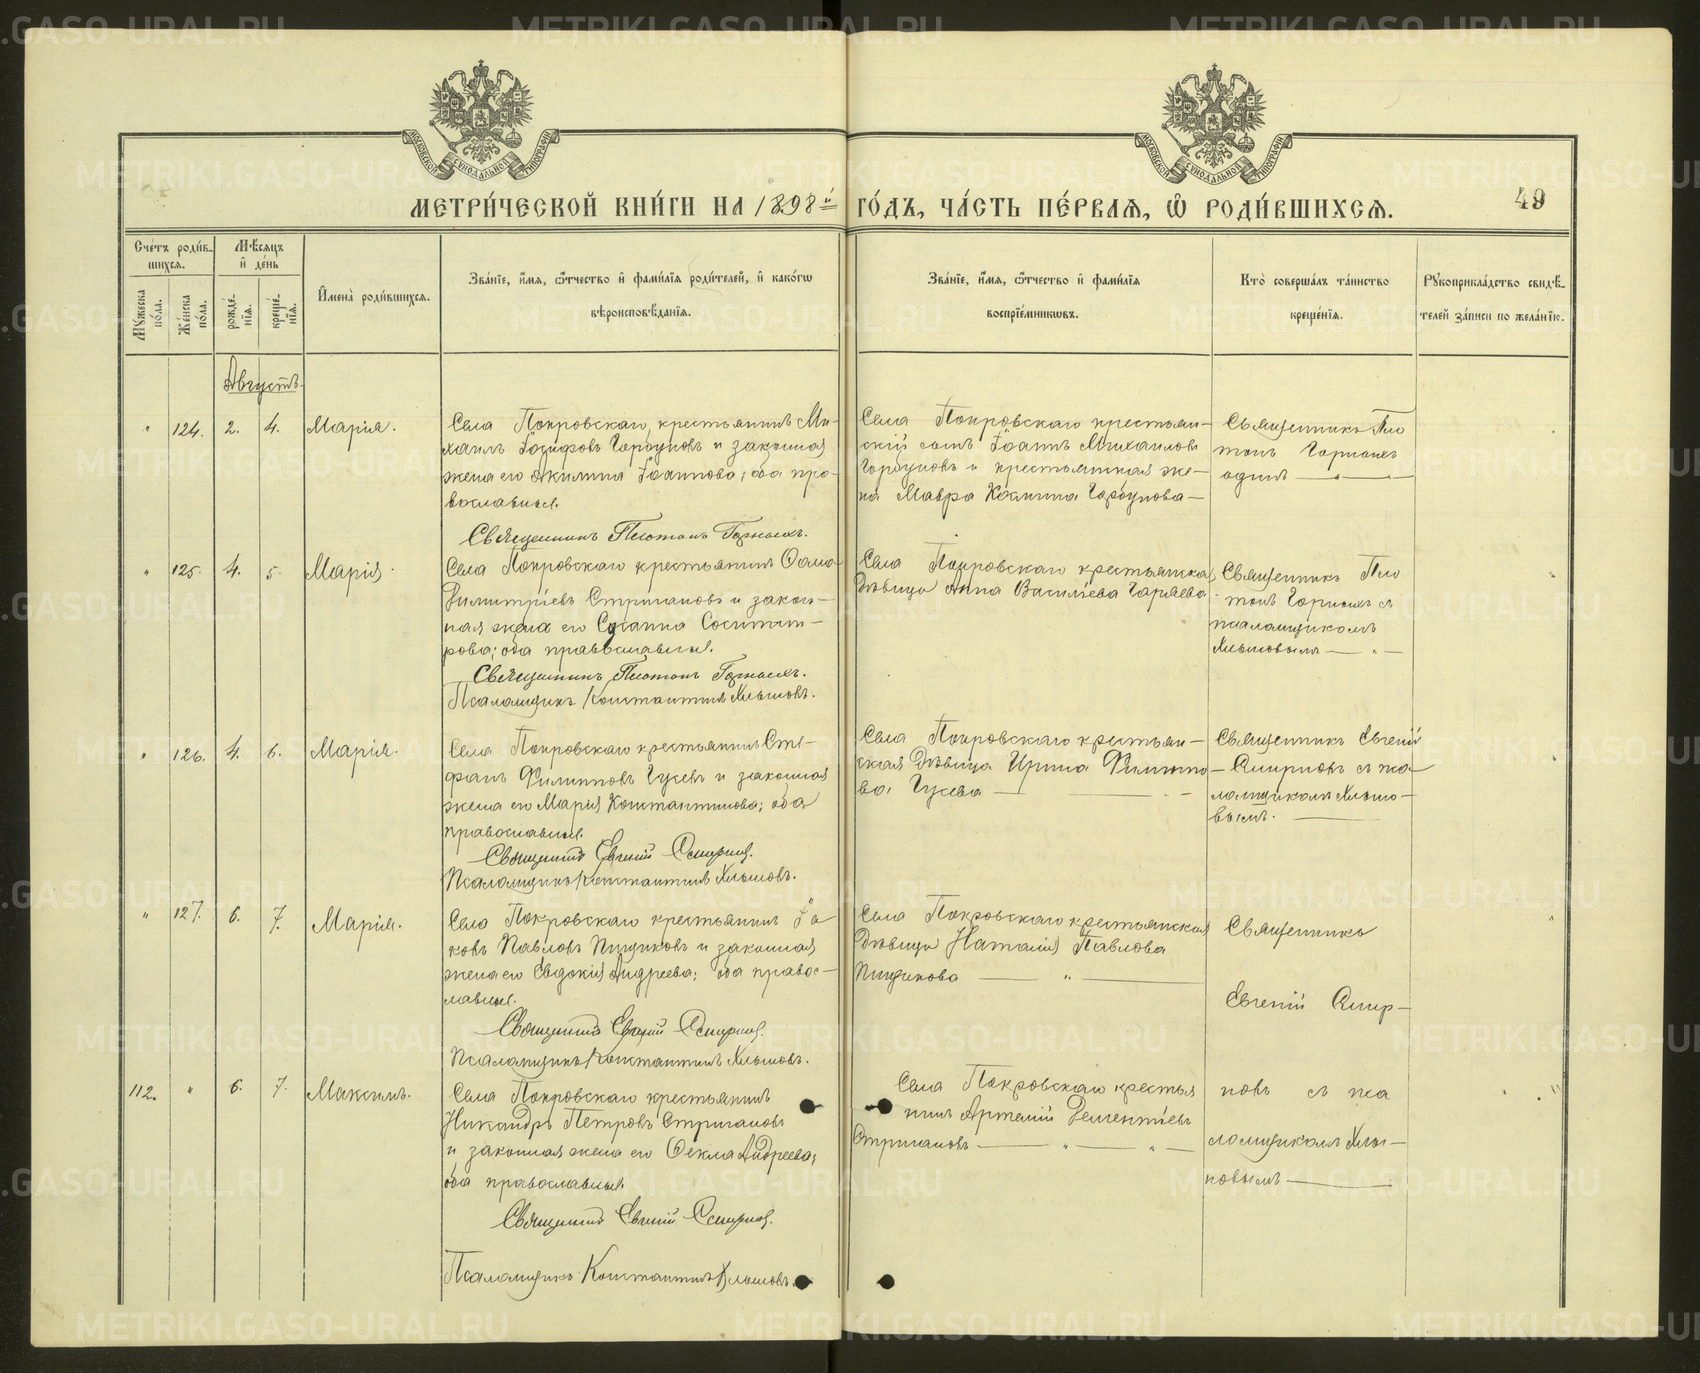 МЕТРИ́ЧЕСКОЙ КНИ́ГИ НА 1898й ГО́ДЪ, ЧА́СТЬ ПЕ́РВАѦ, Ѽ РОДИ́ВШИХСѦ.
49
Сче́тъ роди́в-
шихсѧ.
Мꙋжеска по́ла.
Же́нска по́ла.
Мѣ́сѧцъ и҆ де́нь
рожде́-нїѧ.
креще́-нїѧ.
И҆мена̀ роди́вшихсѧ.
Зва́нїе, и҆́мѧ, ѻ҆́тчество и҆ фами́лїѧ роди́телей, и҆ како́гѡ
вѣроисповѣ́данїѧ.
Зва́нїе, и҆́мѧ, ѻ҆́тчество и҆ фами́лїѧ
воспрїе́мникѡвъ.
Кто̀ соверша́лъ та́инство
креще́нїѧ.
Рꙋкоприкла́дство свидѣ́-
телей за́писи по жела́нїю.
Августъ
" 124. 2. 4. Марія.
Села Покровскаго, крестьянинъ Ми-
хаилъ Іосифовъ Горбуновъ и законная
жена его Акилина Іоаннова; оба пра-
вославные.
Священникъ Платонъ Горныхъ.
Села Покровскаго крестьян-
скій сынъ Іоаннъ Михаиловъ
Горбуновъ и крестьянская же-
на Мавра Космина Горбунова
Священникъ Пла
тонъ Горныхъ
одинъ
" 125. 4. 5. Марія.
Села Покровскаго крестьянинъ Ѳома
Димитріевъ Стригановъ и закон-
ная жена его Сусанна
рова; оба православные.
Священникъ Платонъ Горныхъ.
Псаломщикъ Константинъ Хлыновъ.
Села Покровскаго крестьянская
дѣвица Анна Васильева Гаряева
Священникъ Пла
тонъ Горныхъ съ
псаломщикомъ
Хлыновымъ
" 126. 4. 6. Марія.
Села Покровскаго крестьянинъ Сте-
фанъ Филипповъ Гусевъ и законная
жена его Марія Константинова; оба
православные.
Священникъ Евгеній Смирновъ.
Псаломщикъ Константинъ Хлыновъ.
Села Покровскаго крестьян-
ская дѣвица Ирина Филиппо-
ва Гусева
Священникъ Евгеній
Смирновъ съ пса
ломщикомъ Хлыно-
вымъ.
" 127. 6. 7. Марія.
Села Покровскаго крестьянинъ Іа
ковъ Павловъ Пищиковъ и законная
жена его Евдокія Андреева; оба право-
лавные.
Священникъ Евгеній Смирновъ.
Псаломщикъ Константинъ Хлыновъ.
Села Покровскаго крестьянская
дѣвица Наталія Павлова
Пищикова
Священникъ
Евгеній Смир-
112. " 6. 7. Максимъ.
Села Покровскаго крестьянинъ
Никандръ Петровъ Стригановъ
и законная жена его Ѳекла Андреева;
оба православные.
Священникъ Евгеній Смирновъ.
Псаломщикъ Константинъ Хлыновъ.
Села Покровскаго крестья
нинъ Артемій Дементьевъ
Стригановъ
новъ съ пса
ломщикомъ Хлы-
новымъ
METRIKI.GASO-URAL.RU